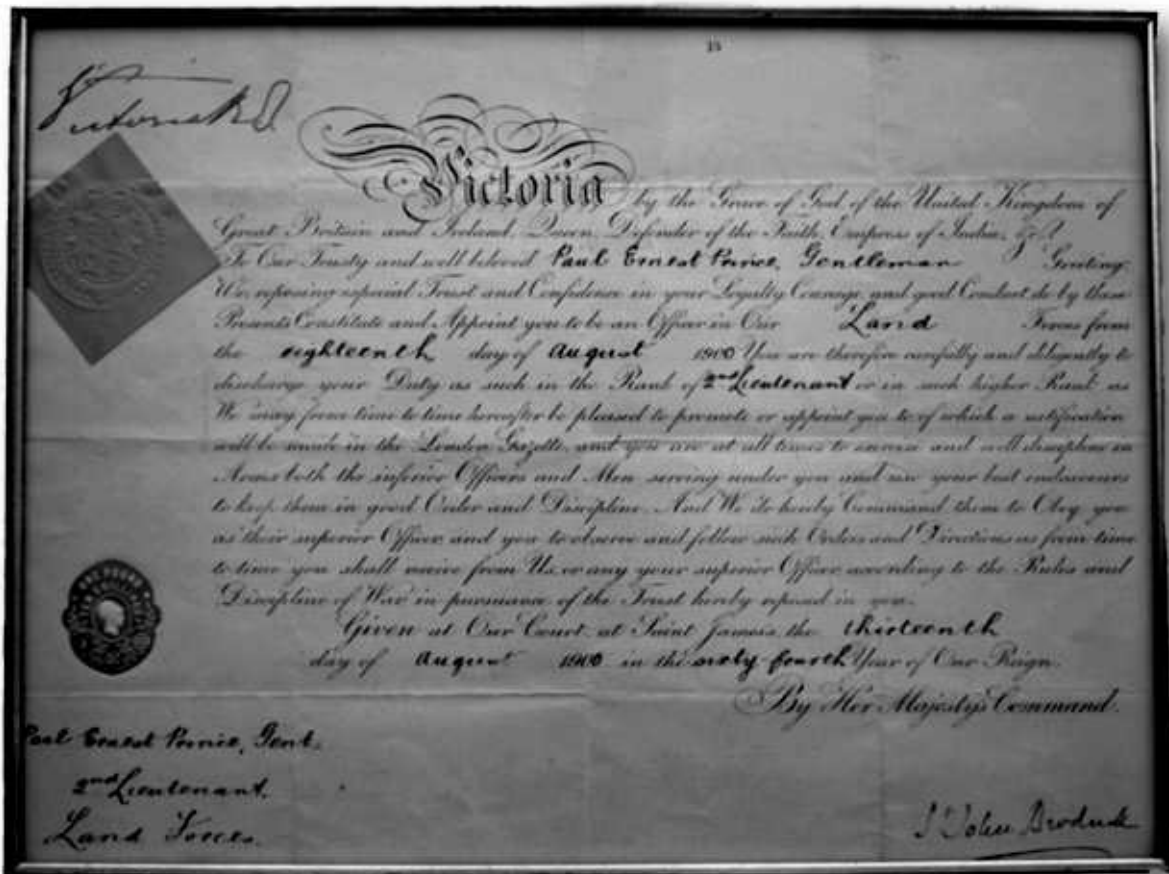 Victoria R I
Victoria by the Grace of God of the United Kingdom of
Great Britain and Ireland, Queen, Defender of the Faith, Empress of India, &c.
To Our Trusty and well beloved Paul Ernest Prince, Gentleman Greeting
We, reposing especial Trust and Confidence in your Loyalty Courage and good Conduct do by these
Presents Constitute and Appoint you to be an Officer in Our Land Forces from
the eighteenth day of August 1900 You are therefore carefully and diligently to
discharge your Duty as such in the Rank of 2nd Lieutenant or in such higher Rank as
We may from time to time hereafter be pleased to promote or appoint you to of which a notification
will be made in the London Gazette, and you are at all times to exercise and well discipline in
Arms both the inferior Officers and Men serving under you and use your best endeavours
to keep them in good Order and Discipline. And We do hereby Command them to Obey you
as their superior Officer and you to observe and follow such Orders and Directions as from time
to time you shall receive from Us, or any your superior Officer according to the Rules and
Discipline of War in pursuance of the Trust hereby reposed in you.
Given at Our Court, at Saint James's, the thirteenth
day of August 1900 in the sixty fourth Year of Our Reign.
By Her Majesty's Command.
Paul Ernest Prince, Gent.
2nd Lieutenant.
Land Forces.
St John Brodrick